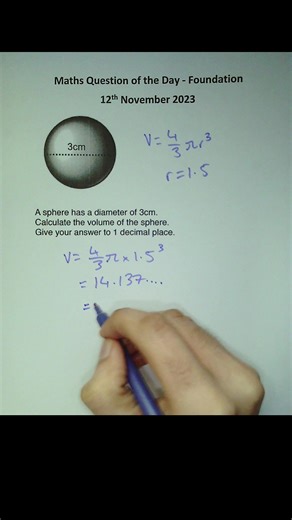 Maths Question of the Day - Foundation
12th November 2023
3cm
V = 4/3 πr³
r = 1.5
A sphere has a diameter of 3cm.
Calculate the volume of the sphere.
Give your answer to 1 decimal place.
V = 4/3 π × 1.5³
= 14.137....
=